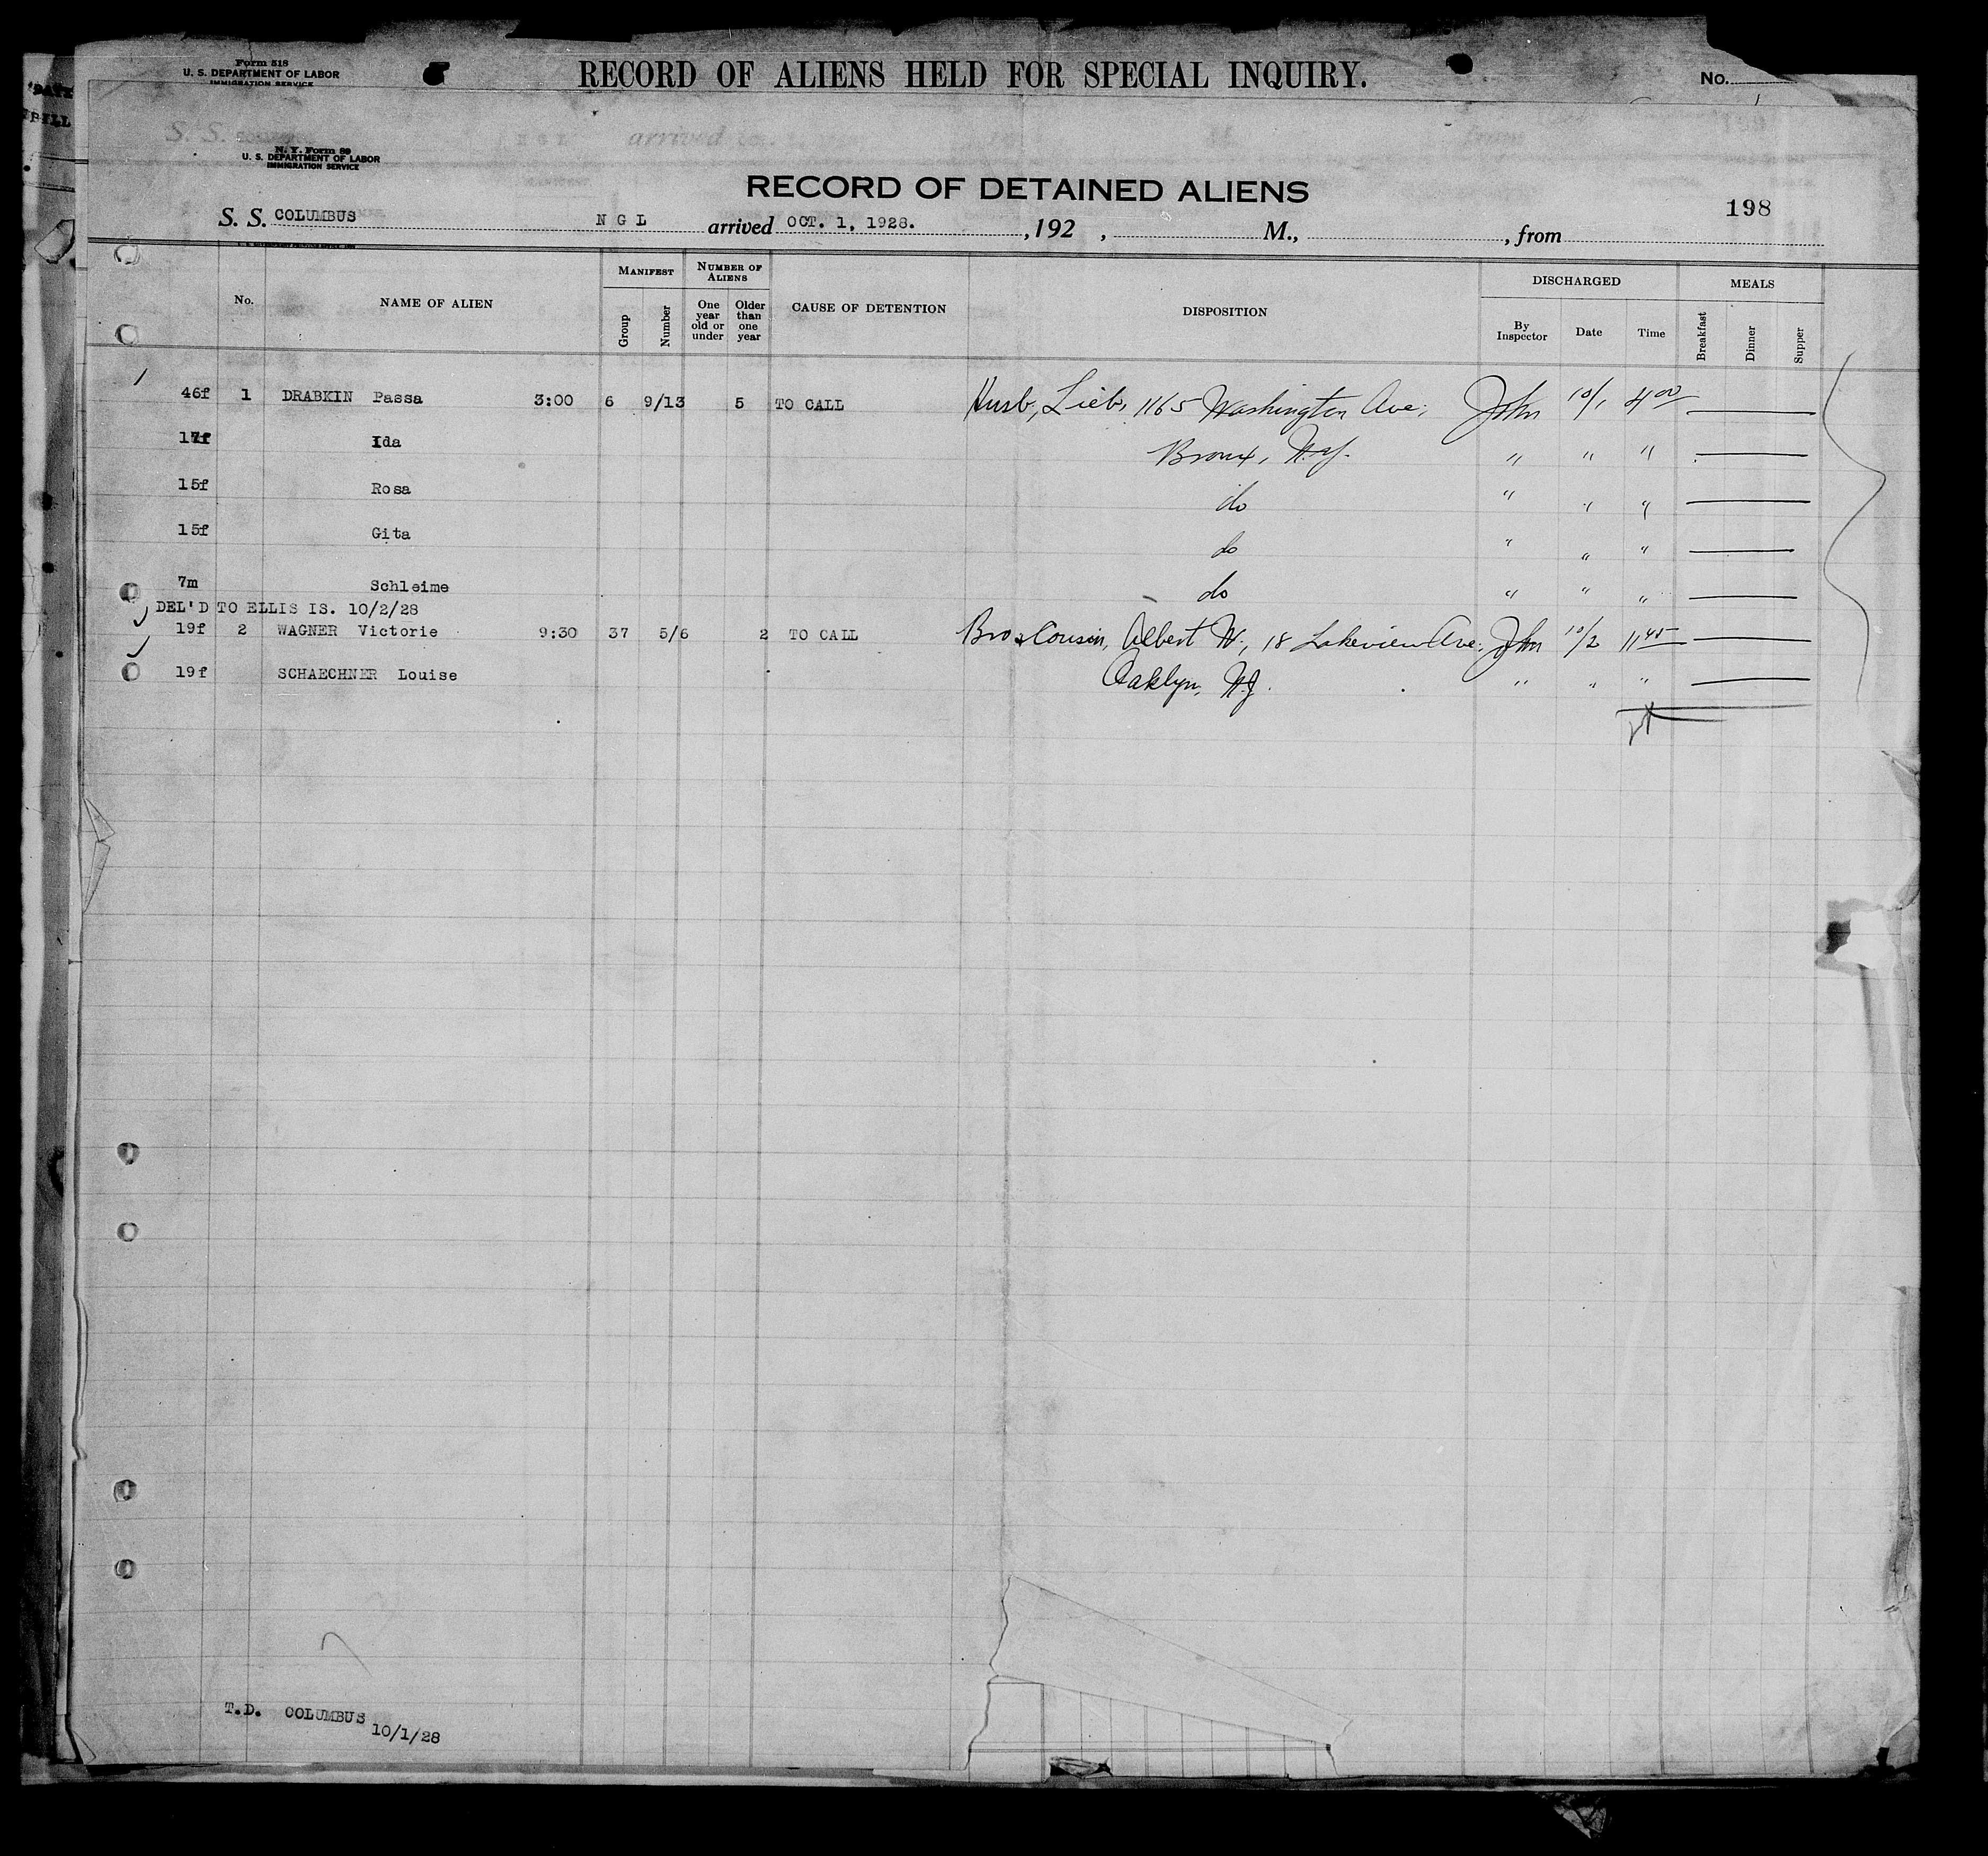 Form 518
U. S. DEPARTMENT OF LABOR
IMMIGRATION SERVICE
RECORD OF ALIENS HELD FOR SPECIAL INQUIRY.
No.
N. Y. Form 89
U. S. DEPARTMENT OF LABOR
IMMIGRATION SERVICE
RECORD OF DETAINED ALIENS
198
S. S. COLUMBUS N G L arrived OCT. 1, 1928. , 192 , M., , from
No. NAME OF ALIEN MANIFEST Group Number NUMBER OF ALIENS One year old or under Older than one year CAUSE OF DETENTION DISPOSITION DISCHARGED By Inspector Date Time MEALS Breakfast Dinner Supper
46f 1 DRABKIN Passa 3:00 6 9/13 5 TO CALL Husb, Lieb, 1165 Washington Ave; John 10/1 4 00
17f Ida Bronx, N.Y. " " "
15f Rosa do " " "
15f Gita do " " "
7m Schleime do " " "
DEL'D TO ELLIS IS. 10/2/28
19f 2 WAGNER Victorie 9:30 37 5/6 2 TO CALL Bro & Cousin, Albert W, 18 Lakeview Ave. John 10/2 11 45
19f SCHAECHNER Louise Oaklyn, N.J. " " "
T.D. COLUMBUS
10/1/28